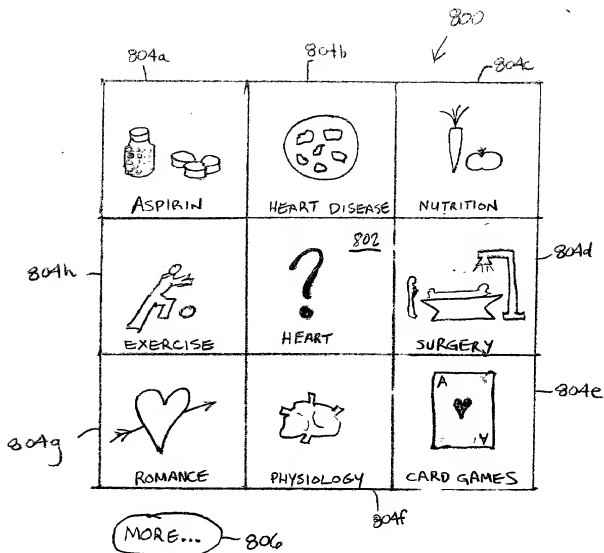 800
804a
804b
804c
ASPIRIN
HEART DISEASE
NUTRITION
804h
802
804d
?
EXERCISE
HEART
SURGERY
804g
A
A
804e
ROMANCE
PHYSIOLOGY
CARD GAMES
804f
MORE...
806